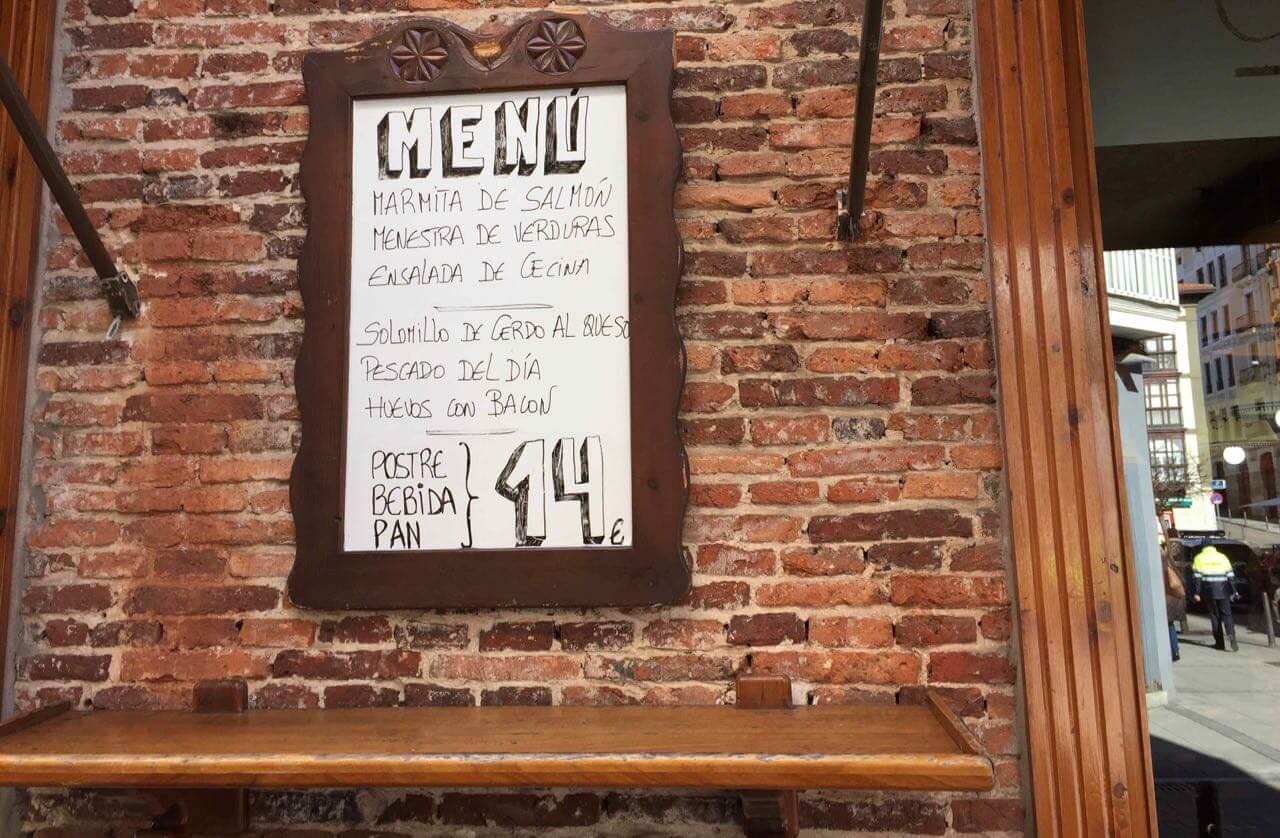 MENÚ
MARMITA DE SALMÓN
MENESTRA DE VERDURAS
ENSALADA DE CECINA
SOLOMILLO DE CERDO AL QUESO
PESCADO DEL DÍA
HUEVOS CON BACON
POSTRE
BEBIDA
PAN
14€